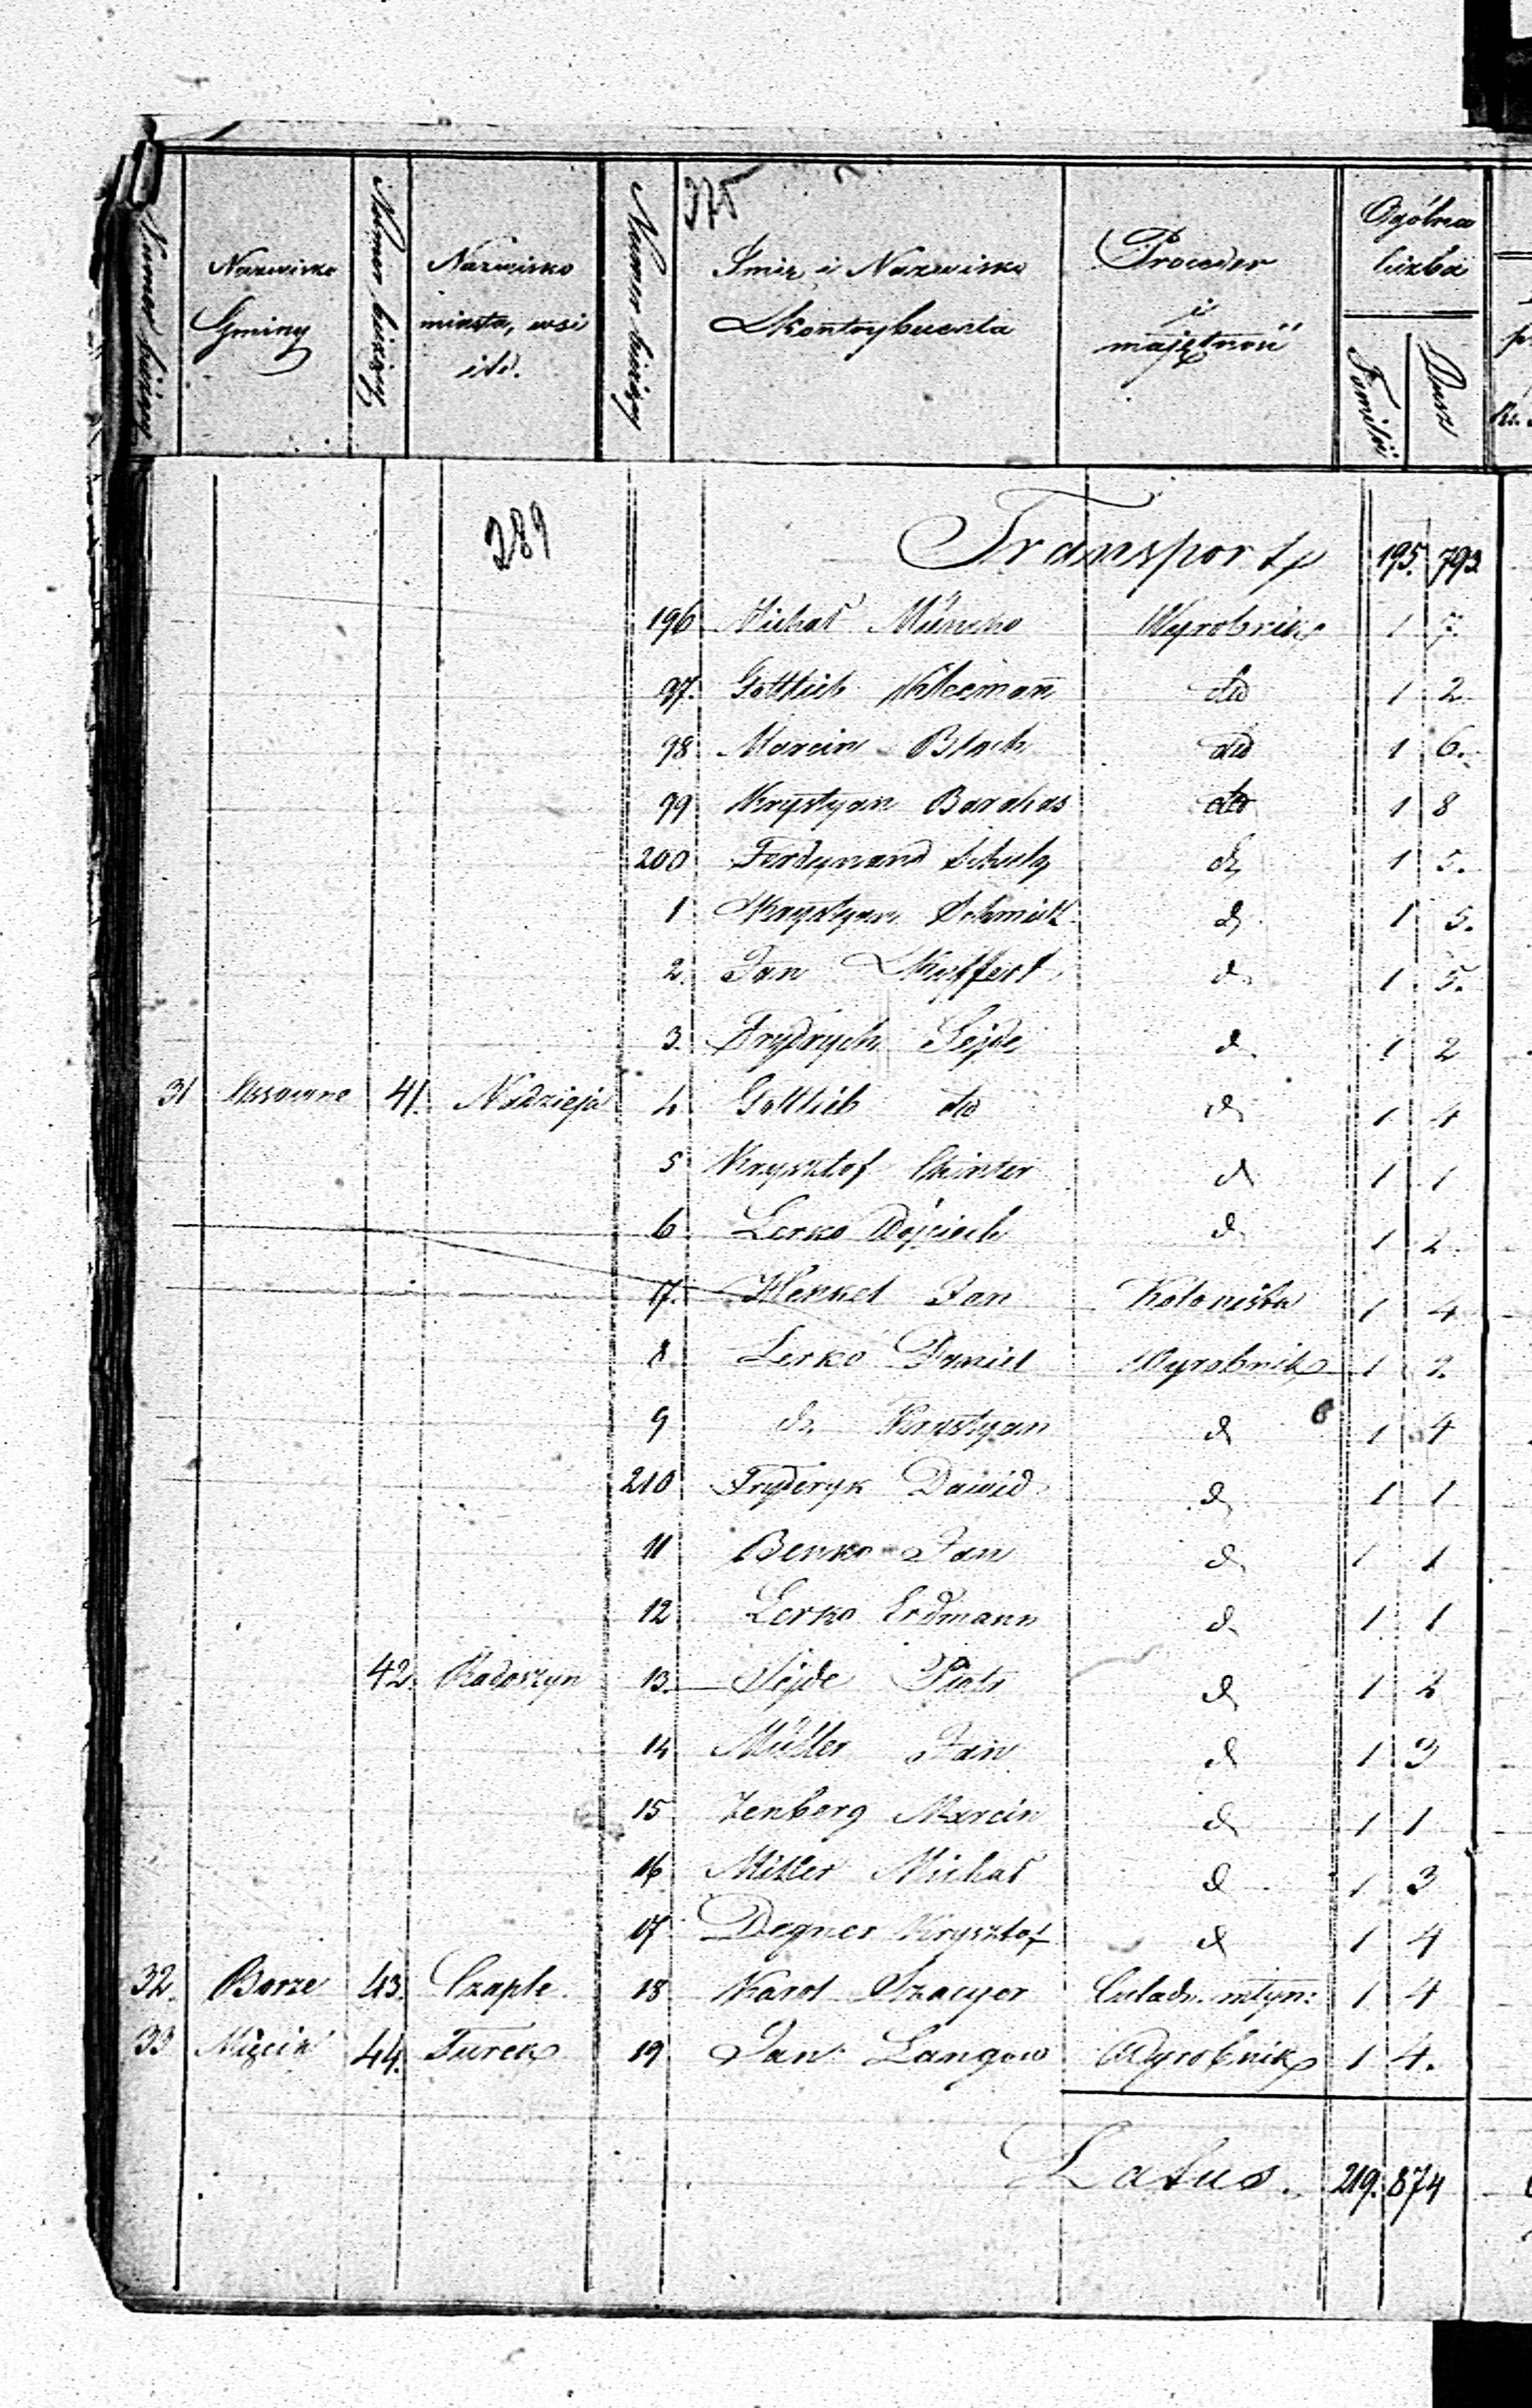 375
Numer bieżący | Nazwisko Gminy | Numer bieżący | Nazwisko miasta, wsi itd. | Numer bieżący | Imię i Nazwisko Kontrybuenta | Proceder i majętność | Ogólna liczba | Familii | Dusz
289
Transport 195. 793
196 Michał Müncko Wyrobnik 1 7.
97. Gottlieb do 1 2
98 Marcin Bloch do 1 6.
99 Krystyan do 1 8
200 Ferdynand Schulz d 1 5.
1 Krystyan Schmidt d 1 5.
2. Jan d 1 5.
3. Frydrych Sejde d 1 2
31 41. Nadzieja 4. Gottlieb do d 1 4
5 Krysztof d 1 1
6. Lerko Wojciech d 1 2.
17. Henkel Jan Kolonista 1 4
8. Lerko Daniel Wyrobnik 1 2.
9 d Krystyan d 1 4
210 Fryderyk Dawid d 1 1
11 Benko Jan d 1 1
12 Lerko Erdmann d 1 1
42. Radoszyn 13. Sejde Piotr d 1 2
14 Müller Jan d 1 3
15 Zenberg Marcin d 1 1
16 Miller Michał d 1 3
17 Degner Krysztof d 1 4
32. Borze 43. Czaple 18 Karol Czeladn. młyn: 1 4
33 44. Turek 19 Jan Langow Wyrobnik 1 4.
Latus. 219. 874